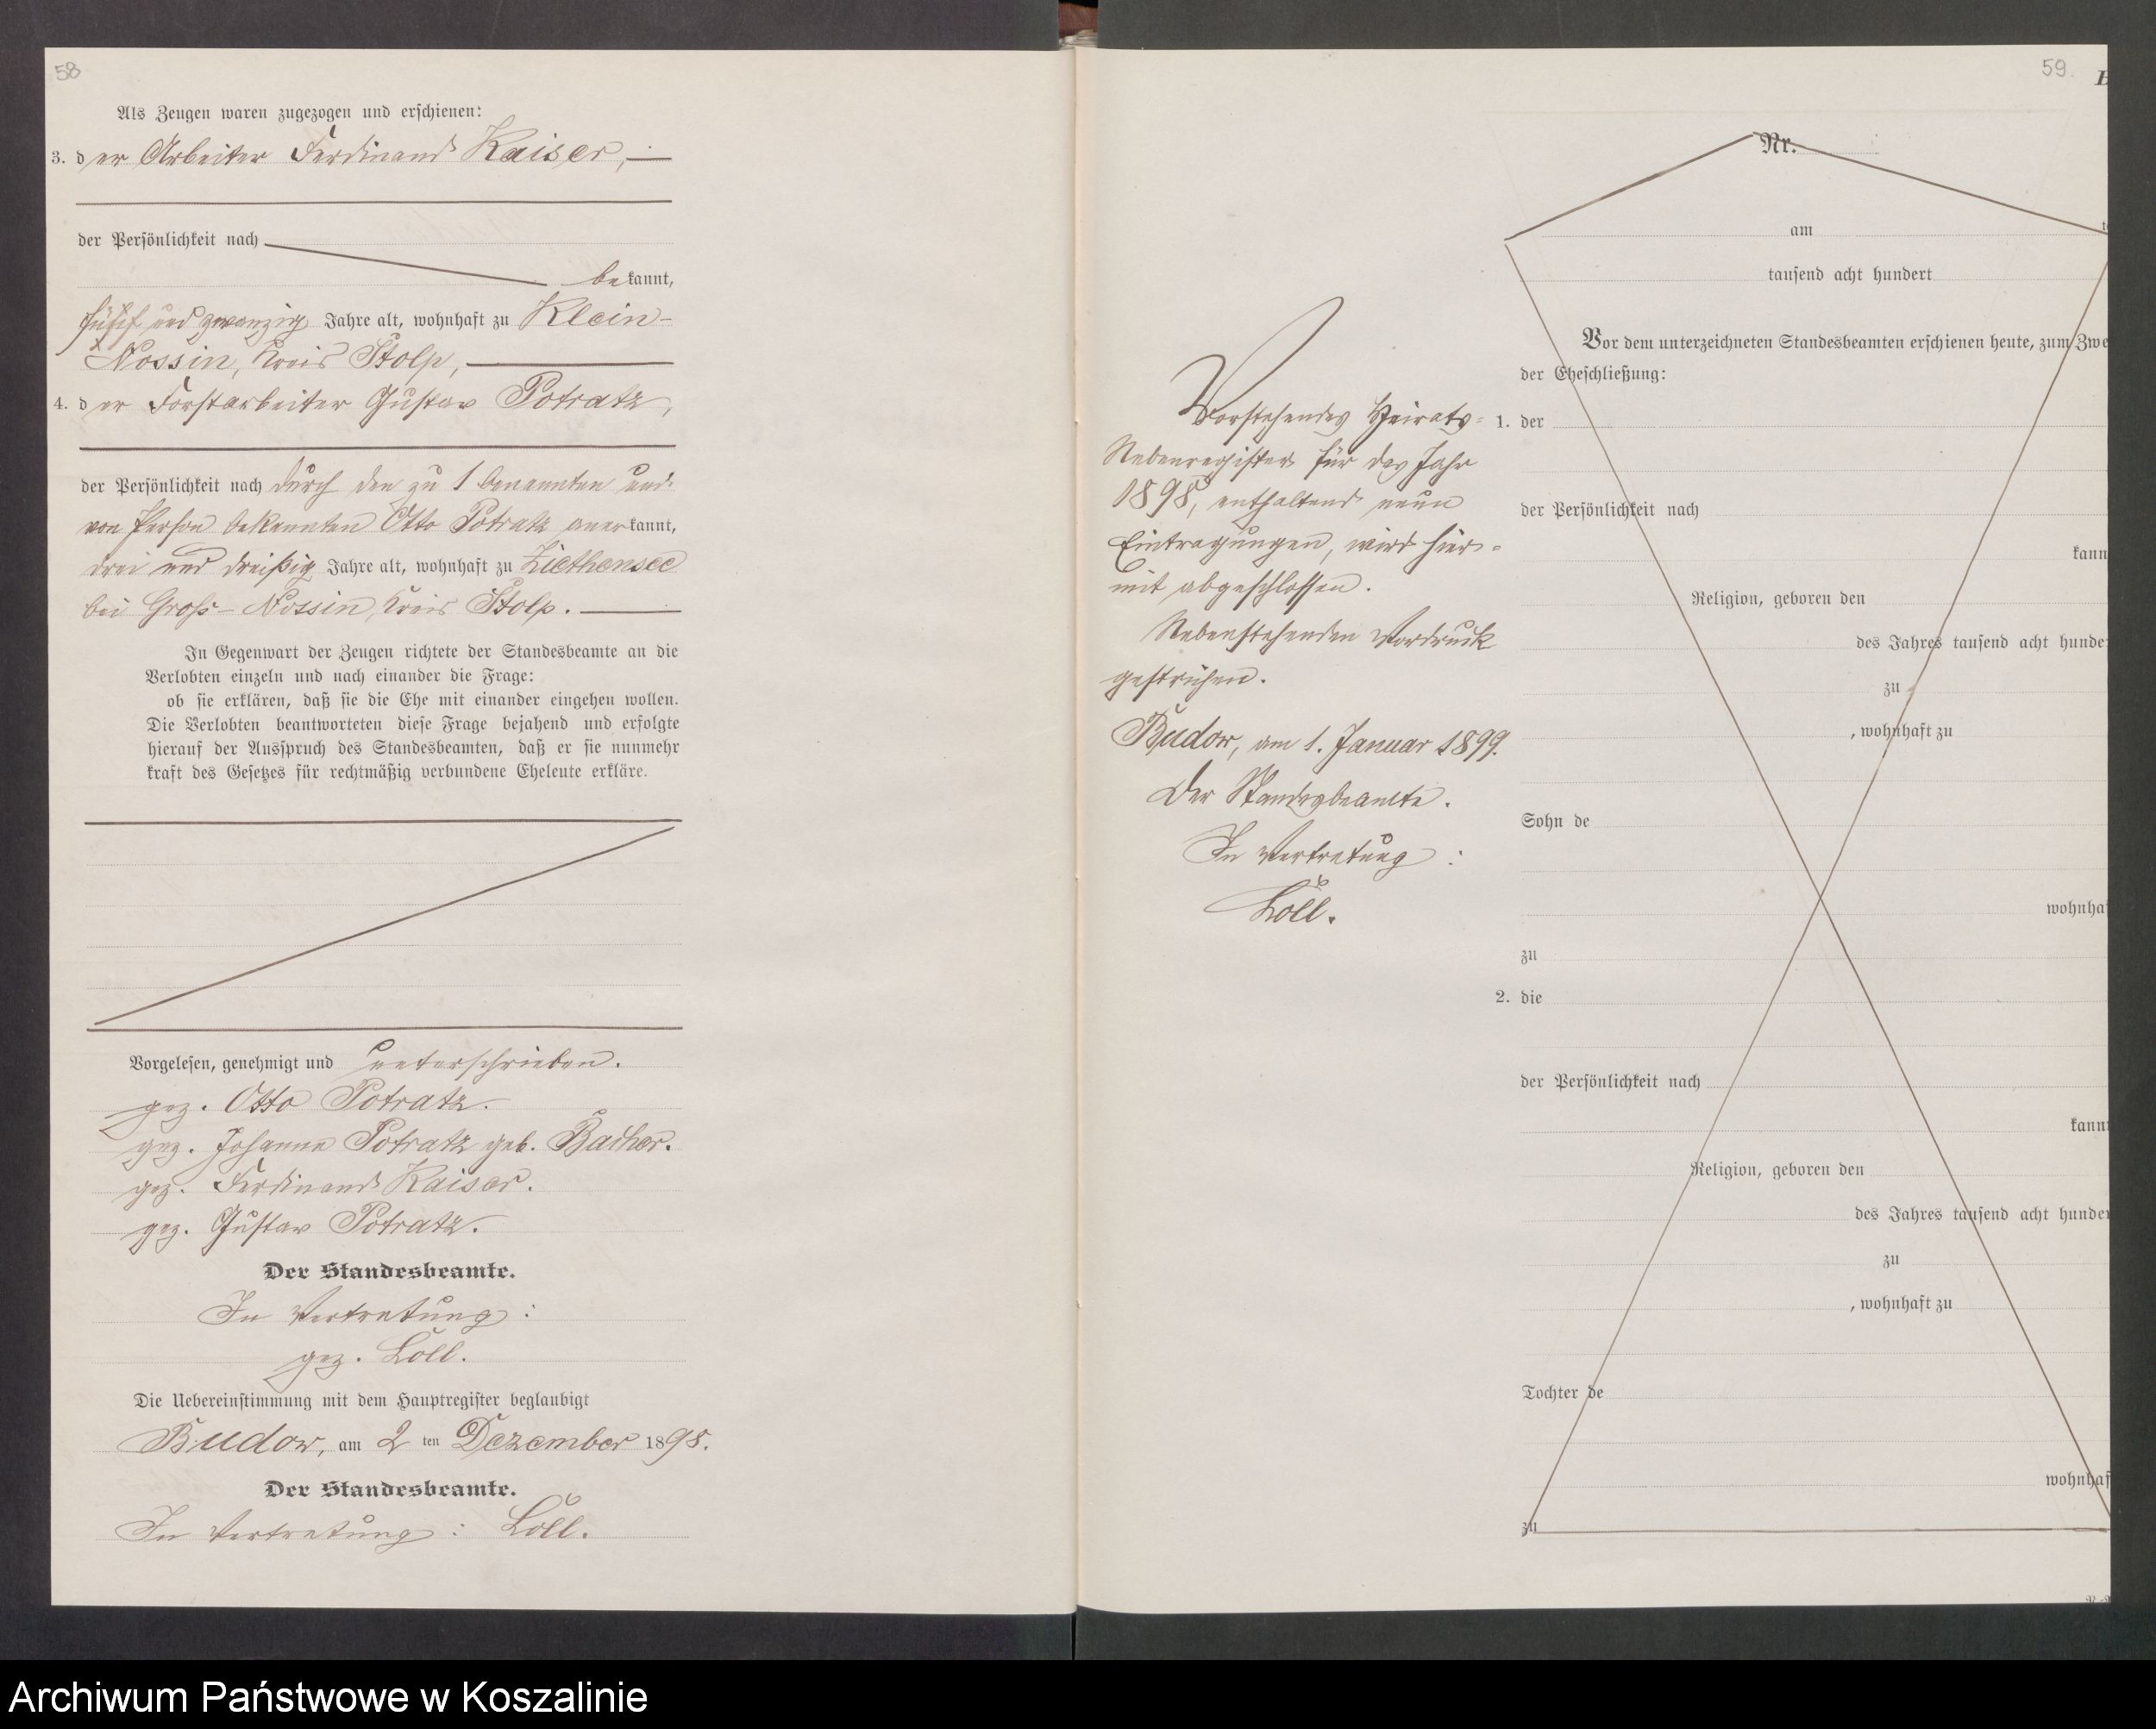 58
Als Zeugen waren zugezogen und erschienen:
3. der Arbeiter Ferdinand Kaiser,
der Persönlichkeit nach
bekannt,
fünf und zwanzig Jahre alt, wohnhaft zu Klein-
Nossin, Kreis Stolp,
4. der Forstarbeiter Gustav Potratz,
der Persönlichkeit nach durch den zu 1 benannten und
von Person bekannten Otto Potratz anerkannt,
drei und dreißig Jahre alt, wohnhaft zu Ziethensee
bei Groß-Nossin, Kreis Stolp.
In Gegenwart der Zeugen richtete der Standesbeamte an die
Verlobten einzeln und nach einander die Frage:
ob sie erklären, daß sie die Ehe mit einander eingehen wollen.
Die Verlobten beantworteten diese Frage bejahend und erfolgte
hierauf der Ausspruch des Standesbeamten, daß er sie nunmehr
kraft des Gesetzes für rechtmäßig verbundene Eheleute erkläre.
Vorgelesen, genehmigt und unterschrieben.
gez. Otto Potratz.
gez. Johanna Potratz geb. Bacher.
gez. Ferdinand Kaiser.
gez. Gustav Potratz.
Der Standesbeamte.
In Vertretung:
gez. Löll.
Die Uebereinstimmung mit dem Hauptregister beglaubigt
Budow, am 2 ten Dezember 1898.
Der Standesbeamte.
In Vertretung: Löll.
59.
Vorstehendes Heirats-
Nebenregister für das Jahr
1898, enthaltend neun
Eintragungen, wird hier-
mit abgeschlossen.
Nebenstehenden Vordruck
gestrichen.
Budow, am 1. Januar 1899.
Der Standesbeamte.
In Vertretung:
Löll.
Nr.
am
tausend acht hundert
Vor dem unterzeichneten Standesbeamten erschienen heute, zum Zwe
der Eheschließung:
1. der
der Persönlichkeit nach
kann
Religion, geboren den
des Jahres tausend acht hunder
zu
, wohnhaft zu
Sohn de
wohnhaf
zu
2. die
der Persönlichkeit nach
kann
Religion, geboren den
des Jahres tausend acht hunder
zu
, wohnhaft zu
Tochter de
wohnhaf
zu
Archiwum Państwowe w Koszalinie